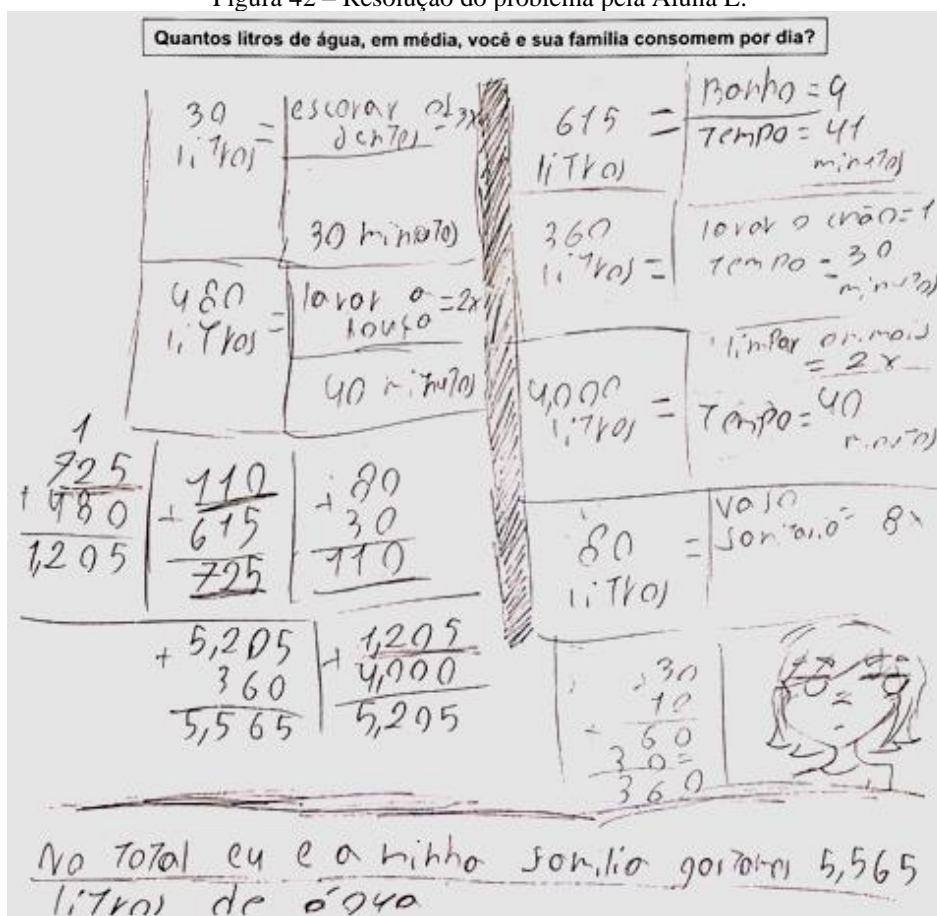 Figura 42 – Resolução do problema pela Aluna E.
Quantos litros de água, em média, você e sua família consomem por dia?
30 litros = escovar os dentes = 3x
30 minutos
480 litros = lavar a louça = 2x
40 minutos
615 litros = Banho = 9
Tempo = 41 minutos
360 litros = lavar o chão = 1
Tempo = 30 minutos
4,000 litros = limpar animais = 2x
Tempo = 40 minutos
80 litros = vaso sanitário = 8x
1
725
+ 480
1,205
110
+ 615
725
+ 80
30
110
+ 5,205
360
5,565
+ 1,205
4,000
5,205
30
60
360
No Total eu e a minha família gastamos 5,565
litros de água